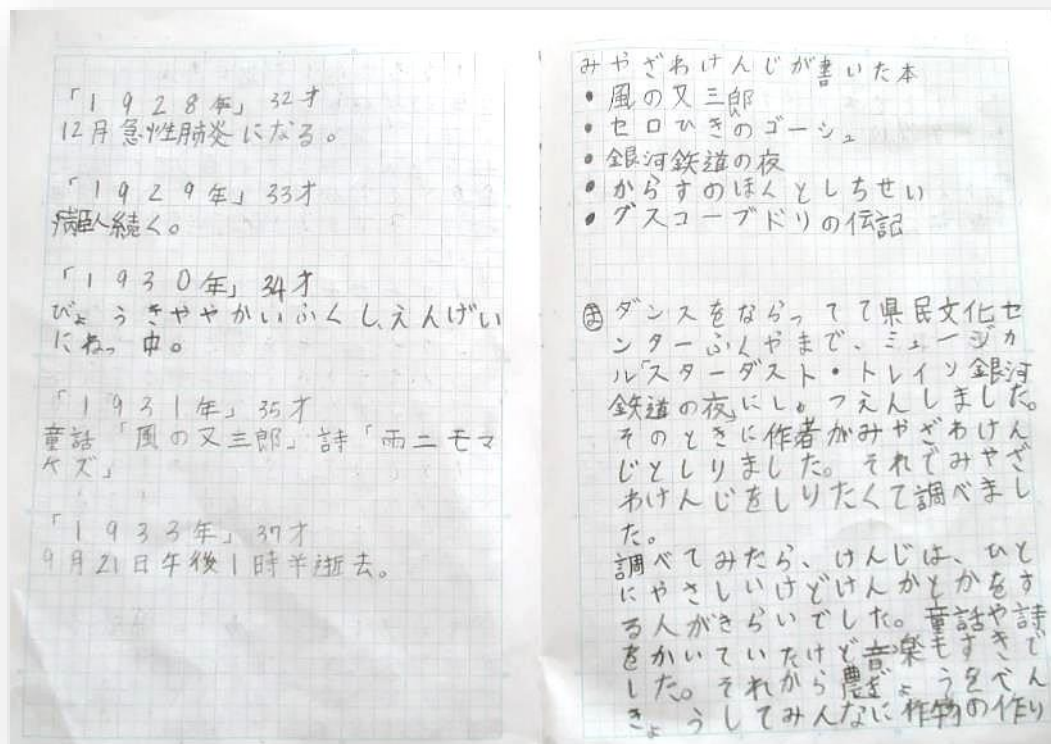 「1928年」32才
12月急性肺炎になる。
「1929年」33才
病臥続く。
「1930年」34才
びょうきややかいふくし、えんげい
にねっ中。
「1931年」35才
童話「風の又三郎」詩「雨ニモマ
ケズ」
「1933年」37才
9月21日午後1時半逝去。
みやざわけんじが書いた本
• 風の又三郎
• セロひきのゴーシュ
• 銀河鉄道の夜
• からすのほくとしちせい
• グスコーブドリの伝記
ま ダンスをならってて県民文化セ
ンターふくやまで、ミュージカ
ル「スターダスト・トレイン銀河
鉄道の夜」にしゅつえんしました。
そのときに作者がみやざわけん
じとしりました。それでみやざ
わけんじをしりたくて調べまし
た。
調べてみたら、けんじは、ひと
にやさしいけどけんかとかをす
る人がきらいでした。童話や詩
をかいていたけど音楽もすきで
した。それから農ぎょうをべん
きょうしてみんなに作物の作り